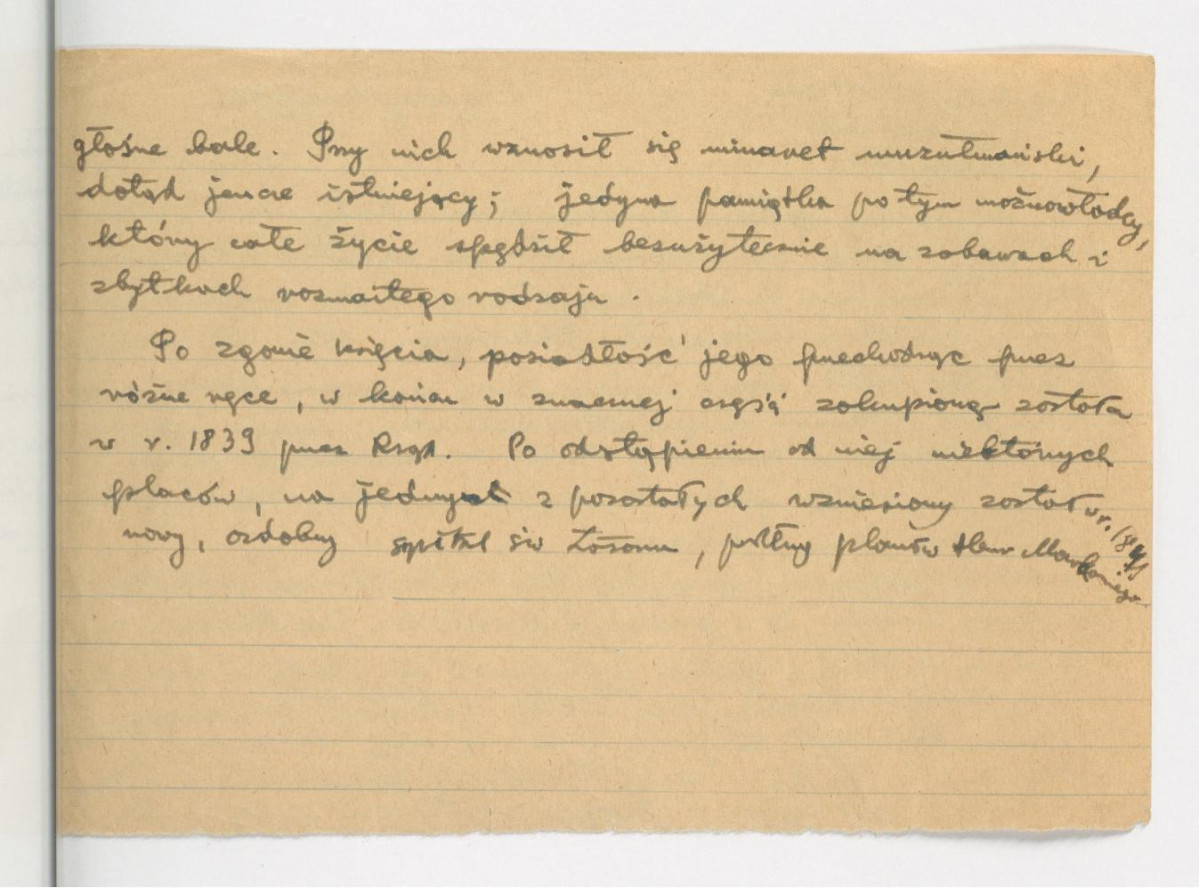 głośne bale. Przy nich wznosił się minaret muzułmański,
dotąd jeszcze istniejący; jedyna pamiątka po tym możnowładcy,
który całe życie spędził bezużytecznie na zabawach i
zbytkach rozmaitego rodzaju.
Po zgonie księcia, posiadłość jego przechodząc przez
różne ręce, w końcu w znacznej części zakupioną została
w r. 1839 przez Rząd. Po odstąpieniu od niej niektórych
placów, na jednym z pozostałych wzniesiony został w r. 1841
nowy, ozdobny szpital św Łazarza, według planów Henr Markoniego